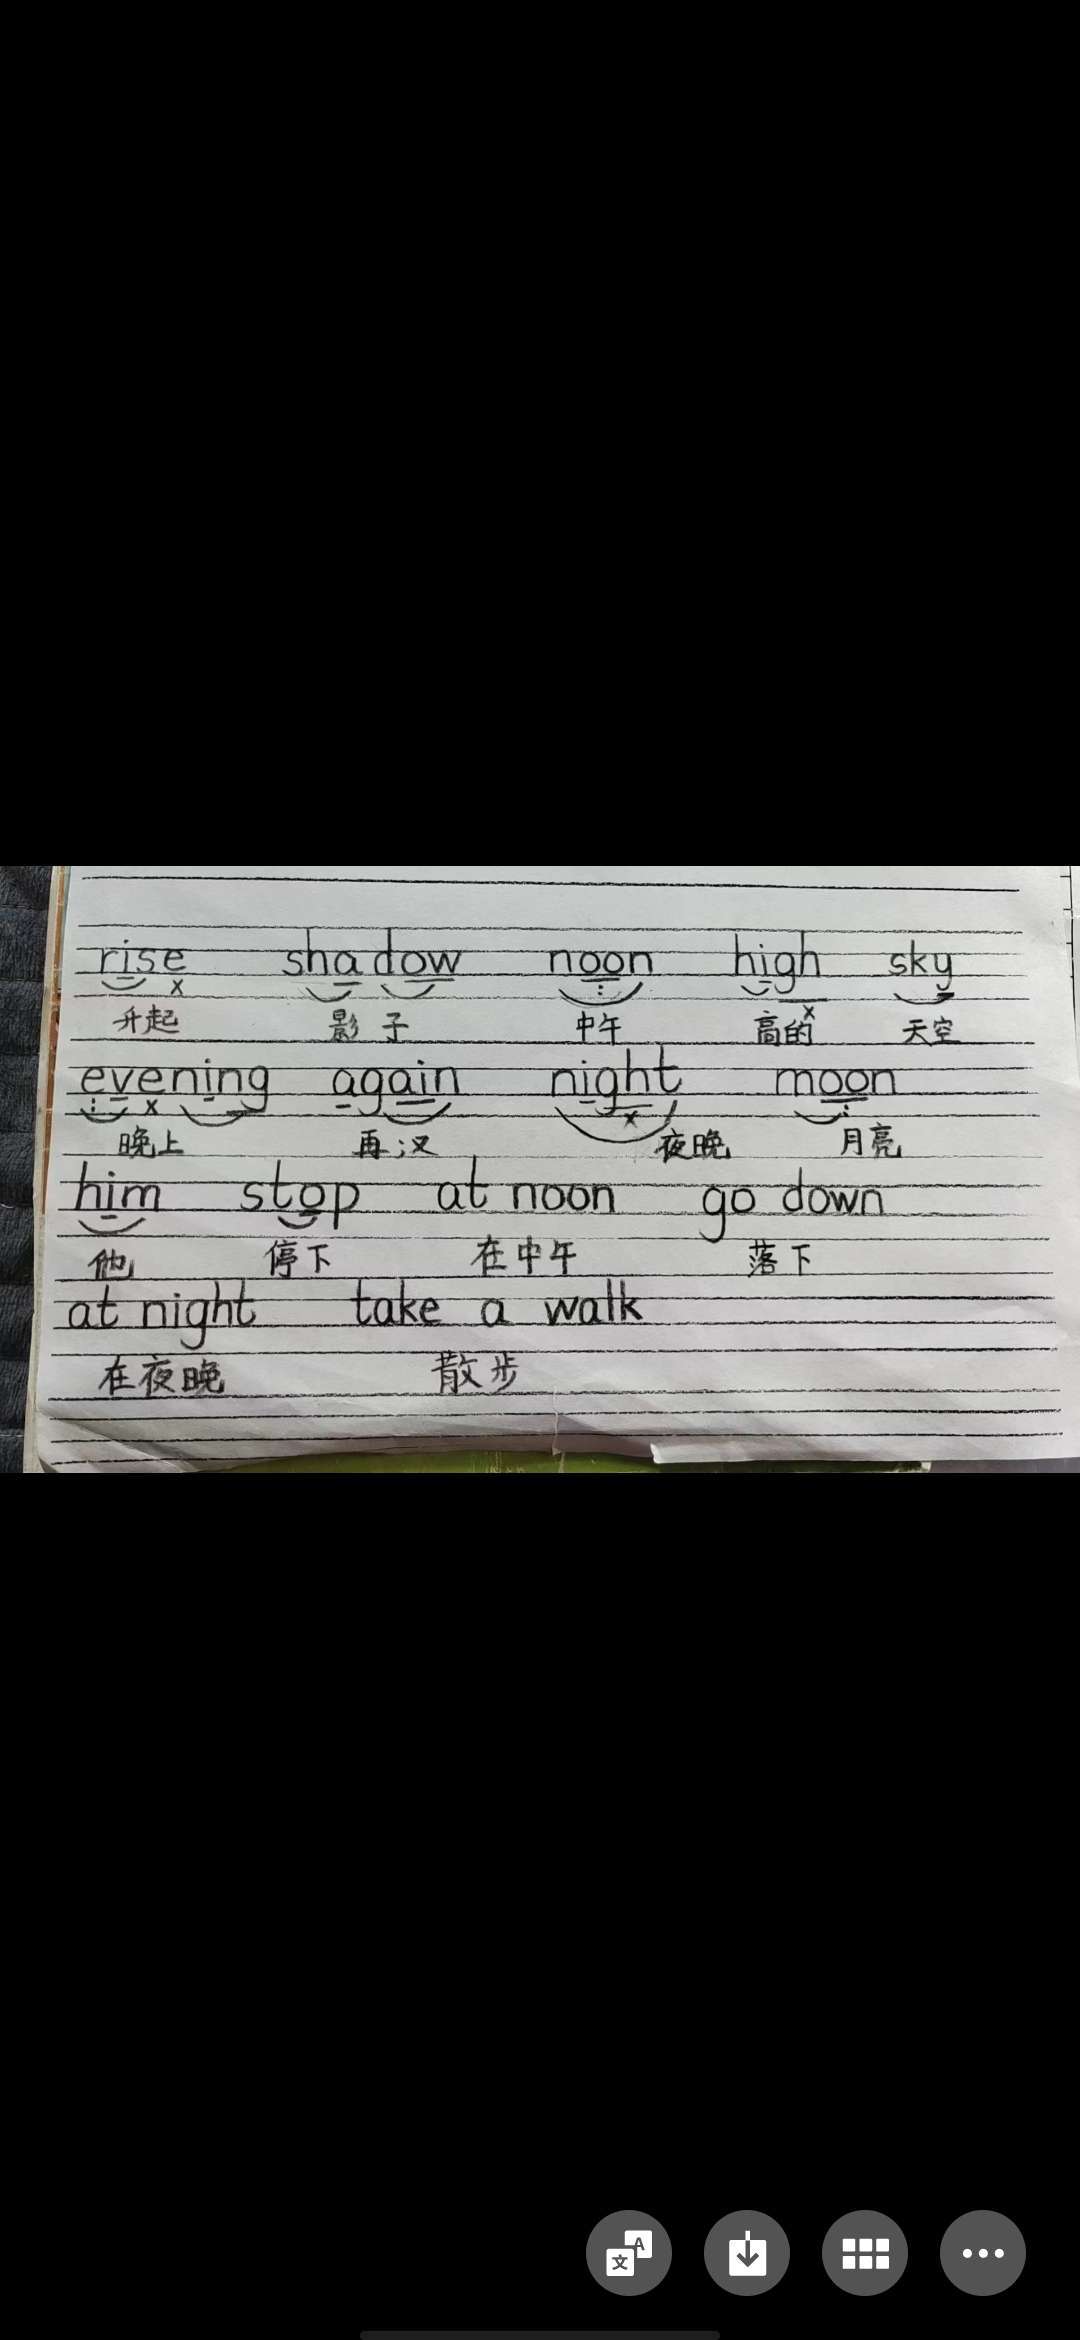 rise shadow noon high sky
升起 影子 中午 高的 天空
evening again night moon
晚上 再次 夜晚 月亮
him stop at noon go down
他 停下 在中午 落下
at night take a walk
在夜晚 散步